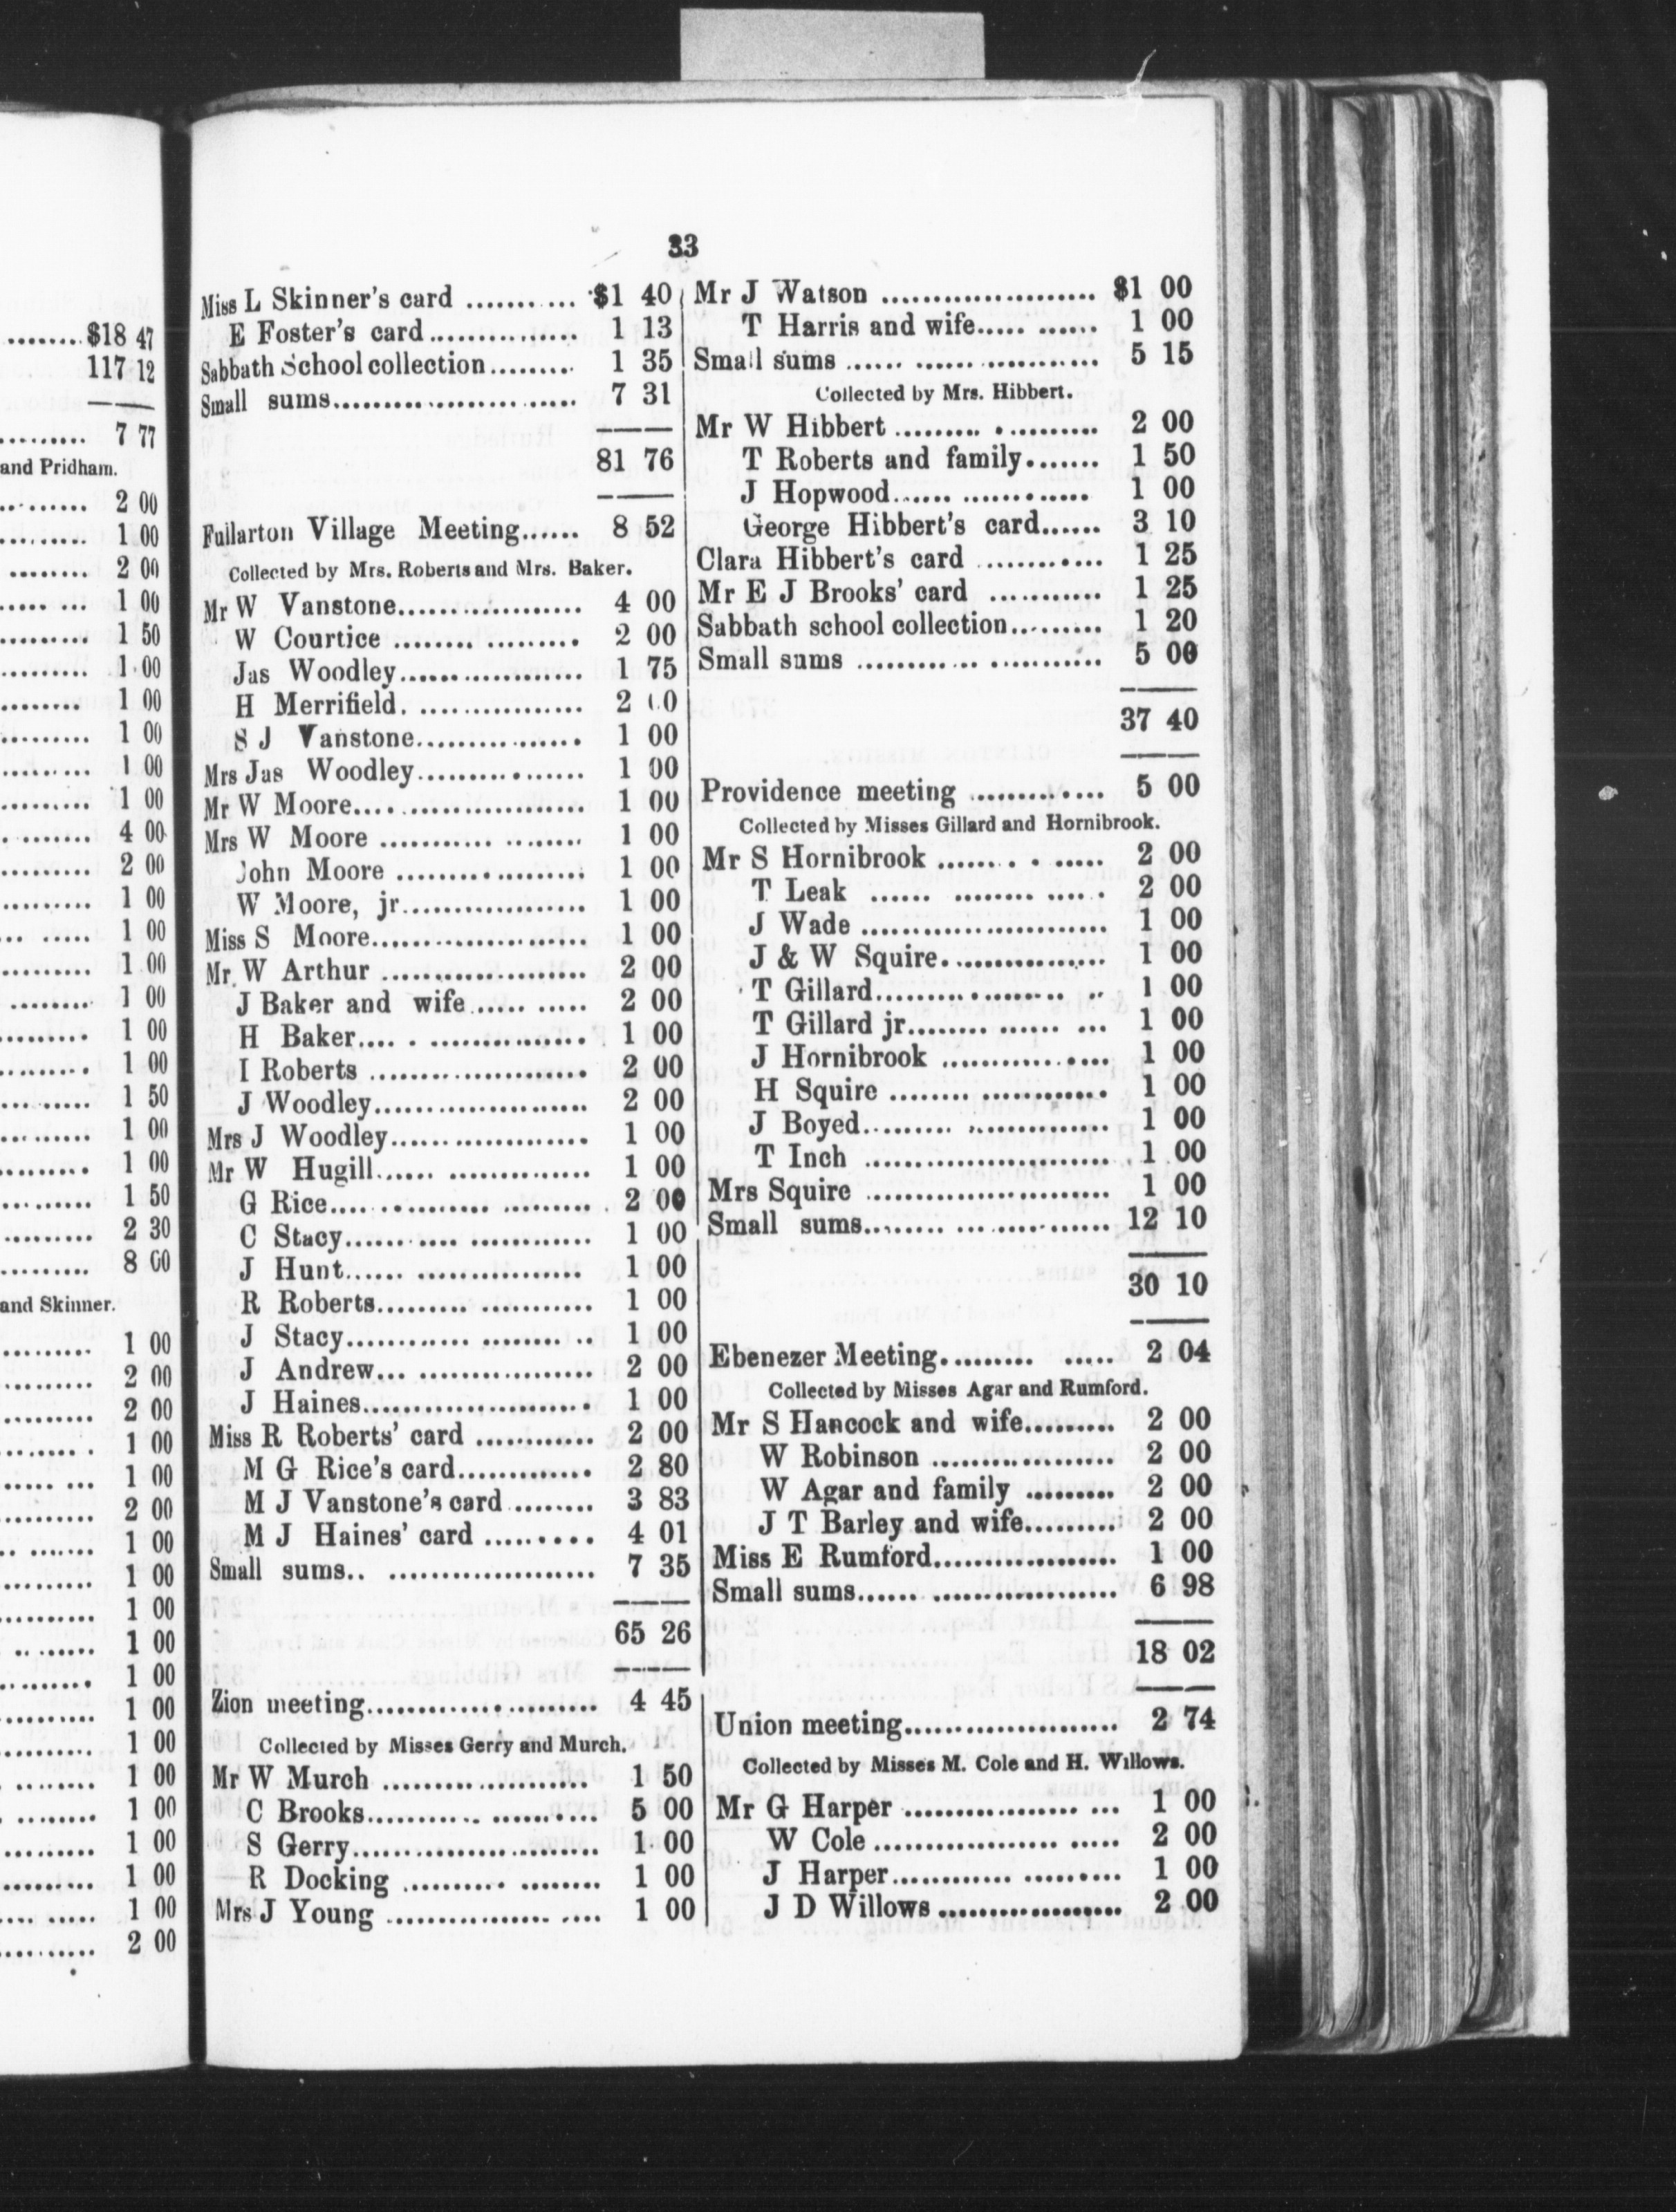 $18 47
117 12
7 77
and Pridham.
2 00
1 00
2 00
1 00
1 50
1 00
1 00
1 00
1 00
1 00
4 00
2 00
1 00
1 00
1 00
1 00
1 00
1 00
1 50
1 00
1 00
1 50
2 30
8 00
and Skinner.
1 00
2 00
2 00
1 00
1 00
2 00
1 00
1 00
1 00
1 00
1 00
1 00
1 00
1 00
1 00
1 00
1 00
1 00
2 00
33
Miss L Skinner's card .......... $1 40
E Foster's card............... 1 13
Sabbath School collection......... 1 35
Small sums........................... 7 31
81 76
Fullarton Village Meeting...... 8 52
Collected by Mrs. Roberts and Mrs. Baker.
Mr W Vanstone.................. 4 00
W Courtice .................. 2 00
Jas Woodley.................. 1 75
H Merrifield. ................ 2 00
S J Vanstone................ 1 00
Mrs Jas Woodley................ 1 00
Mr W Moore...................... 1 00
Mrs W Moore ................... 1 00
John Moore .................. 1 00
W Moore, jr.................. 1 00
Miss S Moore..................... 1 00
Mr W Arthur .................... 2 00
J Baker and wife........... 2 00
H Baker.... . ............... 1 00
I Roberts ..................... 2 00
J Woodley..................... 2 00
Mrs J Woodley................... 1 00
Mr W Hugill...... .............. 1 00
G Rice.... .................... 2 00
C Stacy....................... 1 00
J Hunt...... ................ 1 00
R Roberts......... ........... 1 00
J Stacy............ ........ .. 1 00
J Andrew... ................. 2 00
J Haines...................... 1 00
Miss R Roberts' card ............ 2 00
M G Rice's card............. 2 80
M J Vanstone's card ........ 3 83
M J Haines' card ......... 4 01
Small sums.. .................... 7 35
65 26
Zion meeting....................... 4 45
Collected by Misses Gerry and Murch.
Mr W Murch .................... 1 50
C Brooks...................... 5 00
S Gerry........................ 1 00
R Docking .................. 1 00
Mrs J Young .................... 1 00
Mr J Watson ..................... $1 00
T Harris and wife..... ...... 1 00
Small sums ........................ 5 15
Collected by Mrs. Hibbert.
Mr W Hibbert .................... 2 00
T Roberts and family....... 1 50
J Hopwood.................. 1 00
George Hibbert's card...... 3 10
Clara Hibbert's card ............ 1 25
Mr E J Brooks' card ........... 1 25
Sabbath school collection......... 1 20
Small sums ....................... 5 00
37 40
Providence meeting ............. 5 00
Collected by Misses Gillard and Hornibrook.
Mr S Hornibrook ....... . . ..... 2 00
T Leak ...... ........ .... . 2 00
J Wade ........................ 1 00
J & W Squire................ 1 00
T Gillard................... .. 1 00
T Gillard jr........ ...... ... 1 00
J Hornibrook ................ 1 00
H Squire ........ ............ 1 00
J Boyed......... .............. 1 00
T Inch ........................ 1 00
Mrs Squire ........................ 1 00
Small sums........ ... ........... 12 10
30 10
Ebenezer Meeting......... ..... 2 04
Collected by Misses Agar and Rumford.
Mr S Hancock and wife......... 2 00
W Robinson .................. 2 00
W Agar and family ......... 2 00
J T Barley and wife......... 2 00
Miss E Rumford.................. 1 00
Small sums...... .................. 6 98
18 02
Union meeting..................... 2 74
Collected by Misses M. Cole and H. Willows.
Mr G Harper ................. ... 1 00
W Cole .................. ..... 2 00
J Harper............ ......... 1 00
J D Willows .................. 2 00